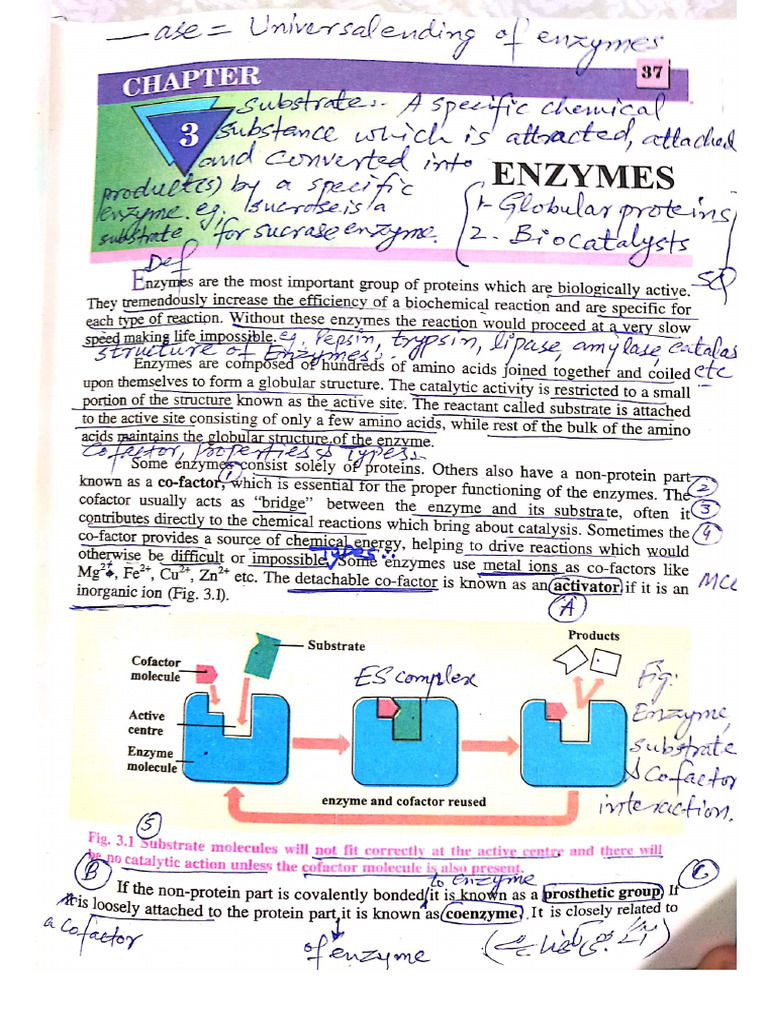 -ase = Universal ending of enzymes
CHAPTER
37
3
Substrate:- A specific chemical
substance which is attracted, attached
and converted into
product(s) by a specific
enzyme. eg, sucrose is a
substrate for sucrase enzyme.
ENZYMES
1- Globular proteins
2- Biocatalysts
SQ
Def
Enzymes are the most important group of proteins which are biologically active.
They tremendously increase the efficiency of a biochemical reaction and are specific for
each type of reaction. Without these enzymes the reaction would proceed at a very slow
speed making life impossible. eg, Pepsin, trypsin, lipase, amylase, catalas
etc
Structure of Enzymes:-
Enzymes are composed of hundreds of amino acids joined together and coiled
upon themselves to form a globular structure. The catalytic activity is restricted to a small
portion of the structure known as the active site. The reactant called substrate is attached
to the active site consisting of only a few amino acids, while rest of the bulk of the amino
acids maintains the globular structure of the enzyme.
Cofactor, properties & Types:-
Some enzymes consist solely of proteins. Others also have a non-protein part
known as a co-factor, which is essential for the proper functioning of the enzymes. The
cofactor usually acts as "bridge" between the enzyme and its substrate, often it
contributes directly to the chemical reactions which bring about catalysis. Sometimes the
co-factor provides a source of chemical energy, helping to drive reactions which would
otherwise be difficult or impossible. Some enzymes use metal ions as co-factors like
Mg2+, Fe2+, Cu2+, Zn2+ etc. The detachable co-factor is known as an activator if it is an
inorganic ion (Fig. 3.1).
1
2
3
4
Types:-
MCQ
A
Substrate
Products
Cofactor
molecule
ES complex
Active
centre
Enzyme
molecule
Fig:
Enzyme,
substrate
& Cofactor
interaction.
enzyme and cofactor reused
5
Fig. 3.1 Substrate molecules will not fit correctly at the active centre and there will
be no catalytic action unless the cofactor molecule is also present.
B
C
to enzyme
If the non-protein part is covalently bonded it is known as a prosthetic group. If
it is loosely attached to the protein part, it is known as coenzyme. It is closely related to
a cofactor
of enzyme